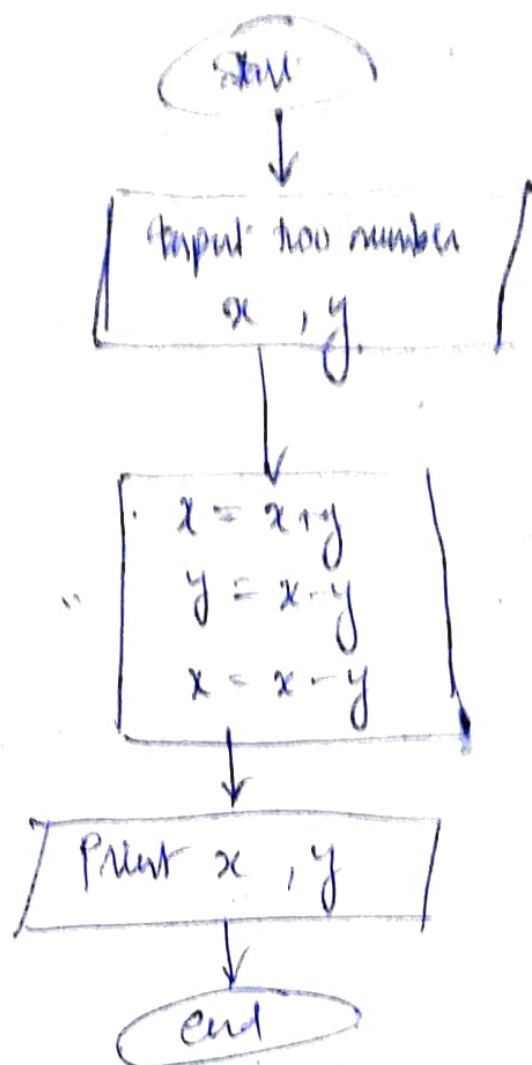 Start
Input two number
x , y
x = x+y
y = x-y
x = x-y
Print x , y
end